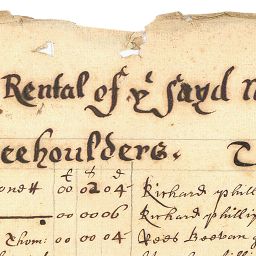 Rental of yͤ sayd
eeholders.
£ s d
00 02 04 Richard phill
00 00 06 Richard philli
Thom: 00 00 04 Rees Beevan